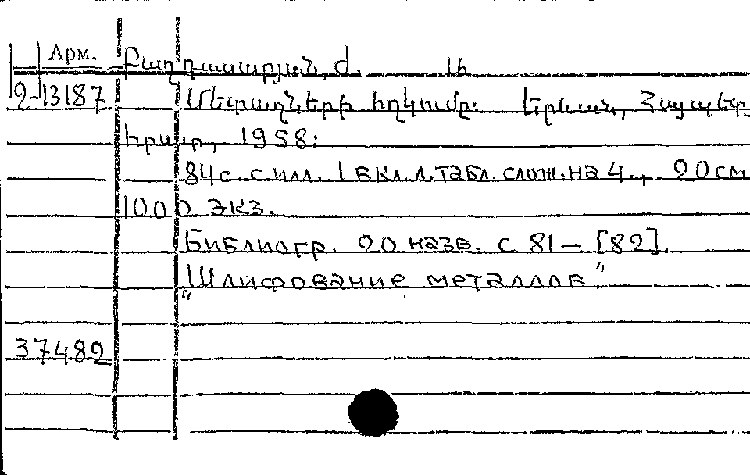 Арм. Բաղդասարյան, Ժ.
2-13187 Մետաղների հղկումը։ Երևան, Հայպետ-
հրատ, 1958։
84 с. с илл. 1 вкл. л. табл. слож. на 4., 20 см
1000 экз.
Библиогр. 20 назв. с 81 – [82].
"Шлифование металлов"
37482